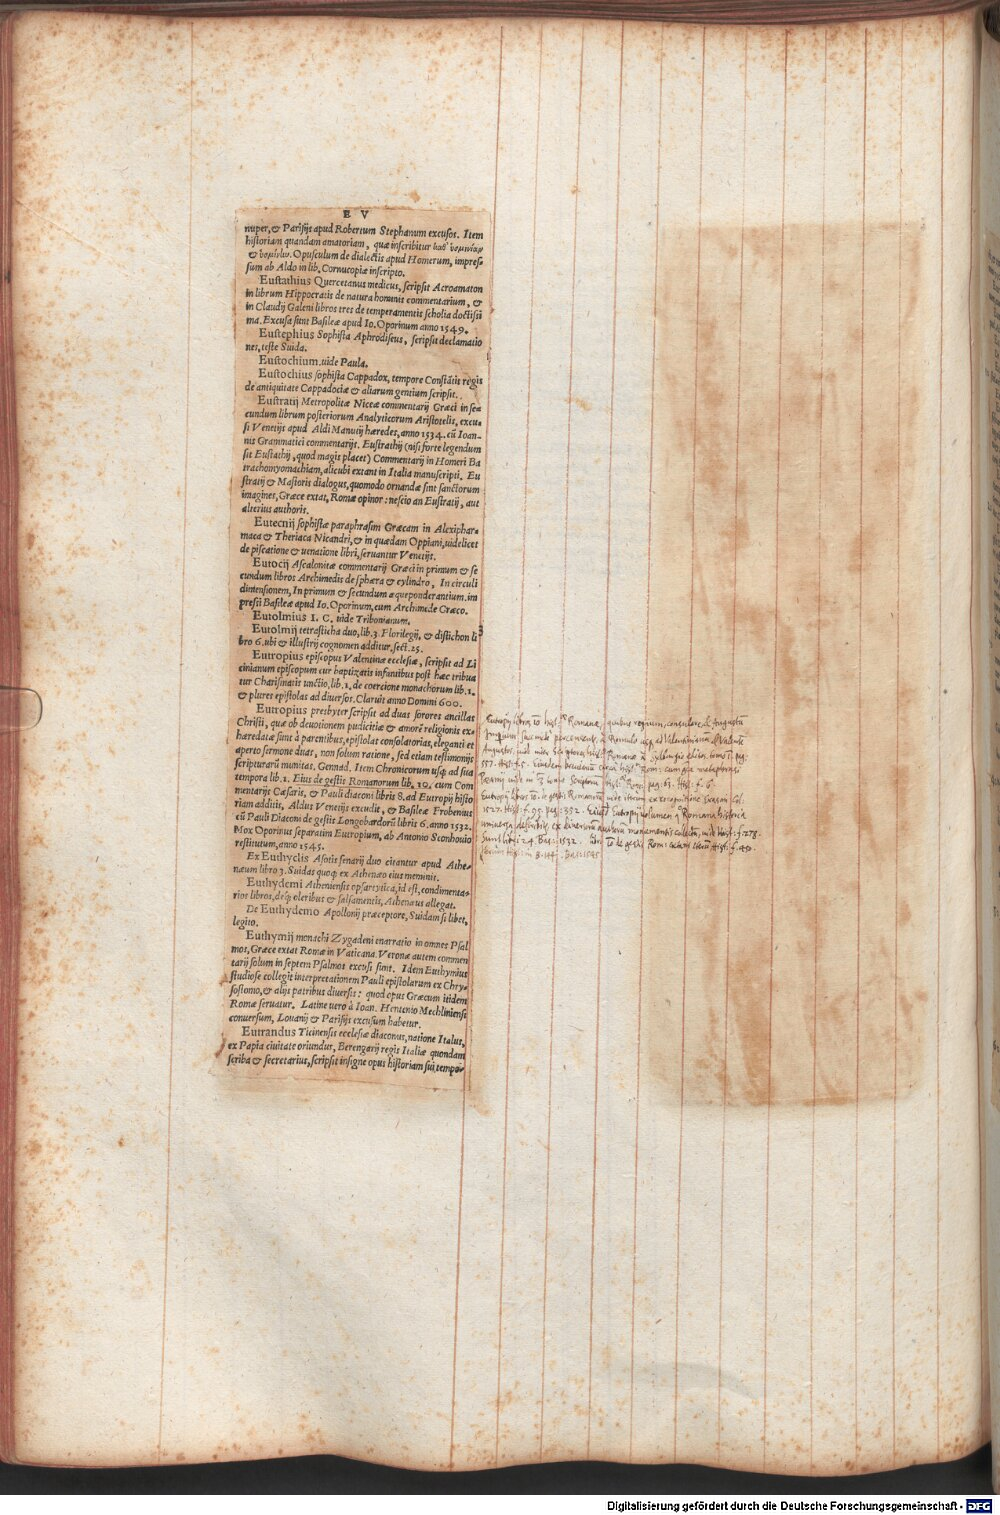 E V
nuper, & Parisijs apud Robertum Stephanum excusos. Item
historiam quandam amatoriam, quæ inscribitur καθ᾽ ὑσμινίαν
& ὑσμίνην. Opusculum de dialectis apud Homerum, impres-
sum ab Aldo in lib. Cornucopiæ inscripto.
Eustathius Quercetanus medicus, scripsit Acroamaton
in librum Hippocratis de natura hominis commentarium, &
in Claudij Galeni libros tres de temperamentis scholia doctissi
ma. Excusa sunt Basileæ apud Io. Oporinum anno 1549.
Eustephius Sophista Aphrodiseus, scripsit declamatio
nes, teste Suida.
Eustochium uide Paula.
Eustochius sophista Cappadox, tempore Constātis regis
de antiquitate Cappadociæ & aliarum gentium scripsit.
Eustratij Metropolitæ Niceæ commentarij Græci in se-
cundum librum posteriorum Analyticorum Aristotelis, excu-
si Venetijs apud Aldi Manutij hæredes, anno 1534. cū Ioan-
nis Grammatici commentarijs. Eustrathij (nisi forte legendum
sit Eustachij, quod magis placet) Commentarij in Homeri Ba
trachomyomachiam, alicubi extant in Italia manuscripti. Eu
stratij & Masioris dialogus, quomodo ornandæ sint sanctorum
imagines, Græce extat, Romæ opinor: nescio an Eustratij, aut
alterius authoris.
Eutecnij sophistæ paraphrasim Græcam in Alexiphar-
maca & Theriaca Nicandri, & in quædam Oppiani, uidelicet
de piscatione & uenatione libri, seruantur Venetijs.
Eutocij Ascalonitæ commentarij Græci in primum & se
cundum libros Archimedis de sphæra & cylindro, In circuli
dimensionem, In primum & secundum æqueponderantium. im
pressi Basileæ apud Io. Oporinum, cum Archimede Græco.
Eutolmius I. C. uide Tribonianum.
Eutolmij tetrasticha duo, lib. 3. Florilegij, & distichon li
bro 6. ubi & illustrij cognomen additur, sect. 25.
Eutropius episcopus Valentinæ ecclesiæ, scripsit ad Li
cinianum episcopum cur baptizatis infantibus post hæc tribua
tur Charismatis unctio, lib. 1. de coercione monachorum lib. 1.
& plures epistolas ad diuersos. Claruit anno Domini 600.
Eutropius presbyter scripsit ad duas sorores ancillas
Christi, quæ ob deuotionem pudicitiæ & amorē religionis ex-
hæredatæ sunt à parentibus, epistolas consolatorias, eleganti et
aperto sermone duas, non solum ratione, sed etiam testimonijs
scripturarū munitas. Gennad. Item Chronicorum usq; ad sua
tempora lib. 1. Eius de gestis Romanorum lib. 10. cum Com
mentarijs Cæsaris, & Pauli diaconi libris 8. ad Eutropij histo
riam additis, Aldus Venetijs excudit, & Basileæ Frobenius
cū Pauli Diaconi de gestis Longobardorū libris 6. anno 1532.
Mox Oporinus separatim Eutropium, ab Antonio Sconhouio
restitutum, anno 1545.
Ex Euthyclis Asotis senarij duo citantur apud Athe-
næum libro 3. Suidas quoq; ex Athenæo eius meminit.
Euthydemi Atheniensis opsartytica, id est, condimenta-
rios libros, deq; oleribus & salsamentis, Athenæus allegat.
De Euthydemo Apollonij præceptore, Suidam si libet,
legito.
Euthymij monachi Zygadeni enarratio in omnes Psal
mos, Græce extat Romæ in Vaticana. Veronæ autem commen
tarij solum in septem Psalmos excusi sunt. Idem Euthymius
studiose collegit interpretationem Pauli epistolarum ex Chry-
sostomo, & alijs patribus diuersis: quod opus Græcum itidem
Romæ seruatur. Latine uero à Ioan. Hentenio Mechliniensi
conuersum, Louanij & Parisijs excusum habetur.
Eutrandus Ticinensis ecclesiæ diaconus, natione Italus,
ex Papia ciuitate oriundus, Berengarij regis Italiæ quondam
scriba & secretarius, scripsit insigne opus historiam sui tempo-
Eutropij libri 10 hist. Romanæ, quibus regnum, consulare &
Romulo usq; ad Valentinianū & Valentē
Augustos,
pag. 63. Hist: f. 6.
Eutropij libri 10 de gestis Romanorū
1527. Hist: f. 99. pag: 352. Eiusdē Eutropij volumen Romana historia
Hist: f. 278.
1532. Rom: Hist: f. 40.
Digitalisierung gefördert durch die Deutsche Forschungsgemeinschaft - DFG